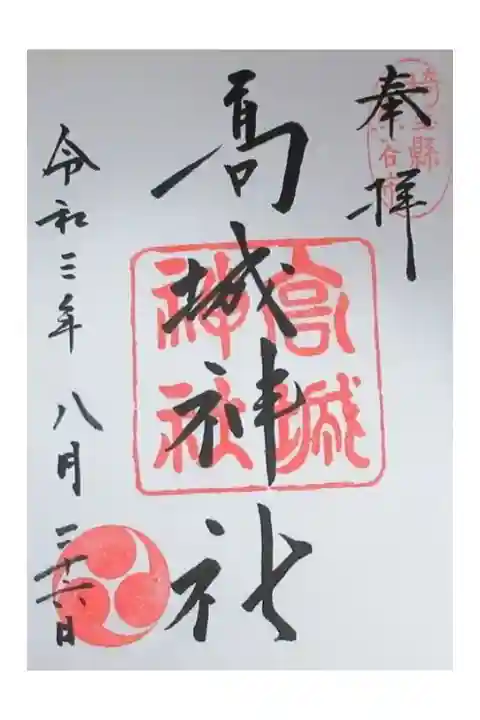 奉拝
埼玉縣
熊谷市
髙城神社
高城
神社
令和三年八月二十六日